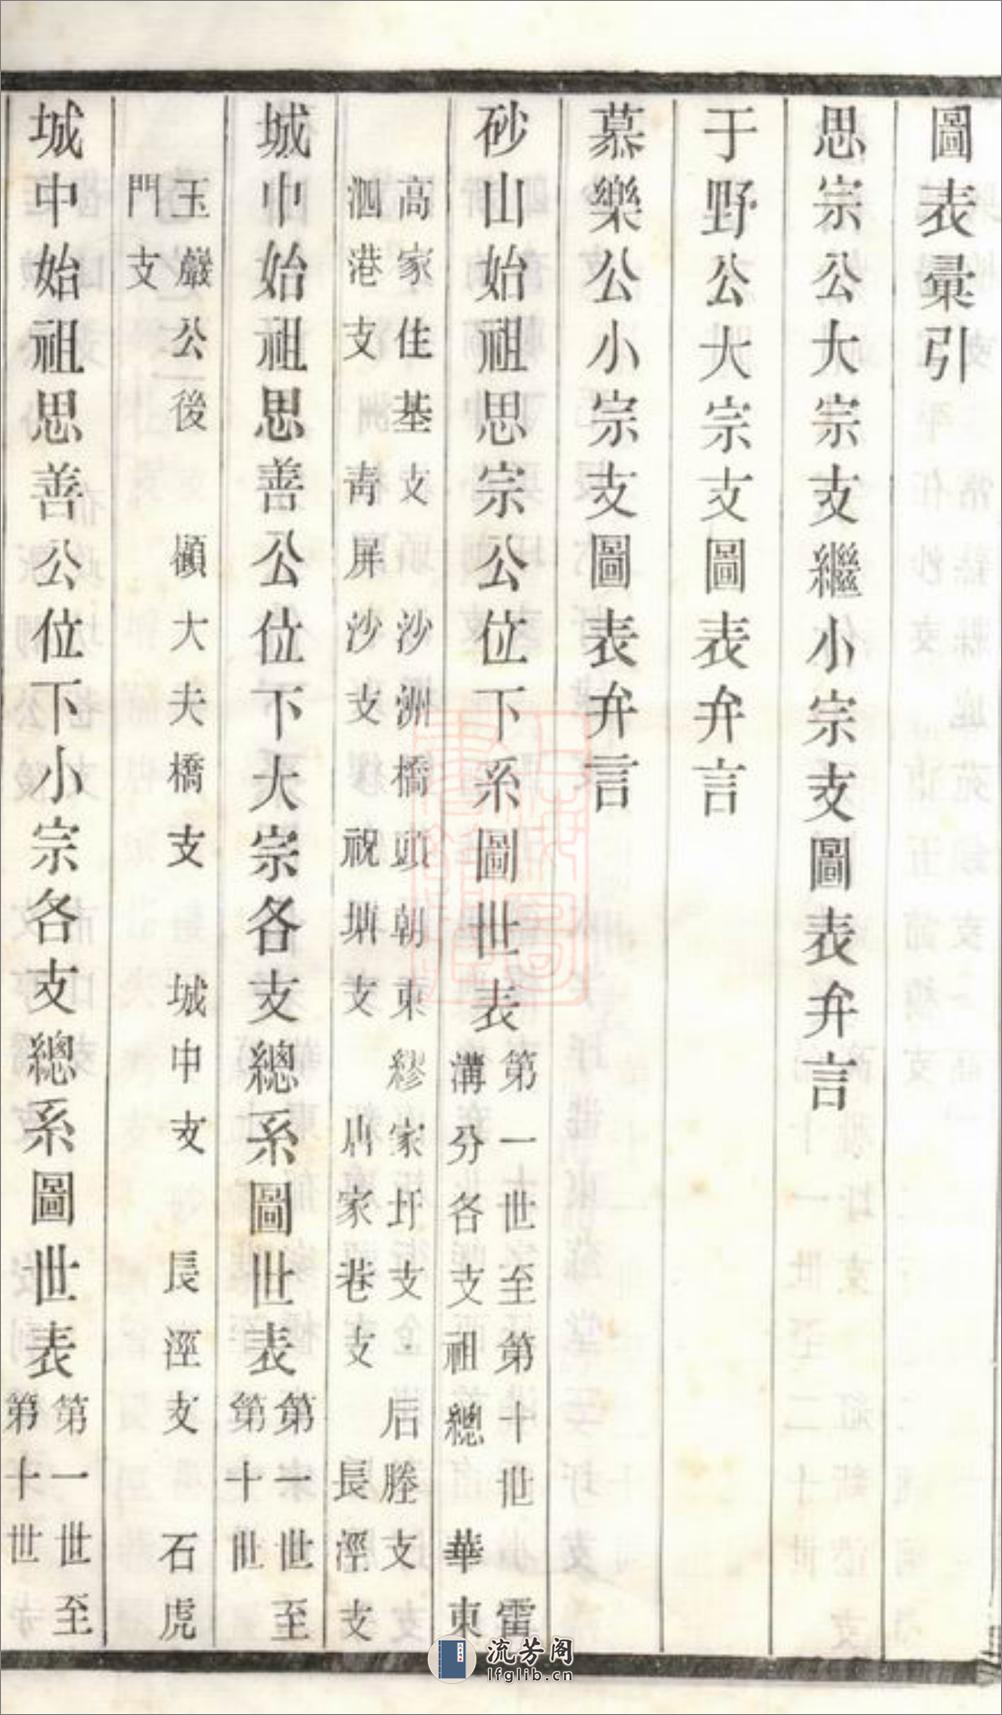 圖表彙引
思宗公大宗支繼小宗支圖表弁言
于野公大宗支圖表弁言
慕樂公小宗支圖表弁言
砂山始祖思宗公位下系圖世表
第一世至第十世 雷
溝分各支祖總 華東
高家住基支 沙洲橋頭朝東 繆家圩支金 后塍支
泗港支 靑屏沙支 祝塘支 唐家巷支 長涇支
城中始祖思善公位下大宗各支總系圖世表
第一世至
第十世
玉巖公後 顧大夫橋支 城中支 長涇支 石虎
門支
城中始祖思善公位下小宗各支總系圖世表
第一世至
第十世
流芳阁
lfglib.cn